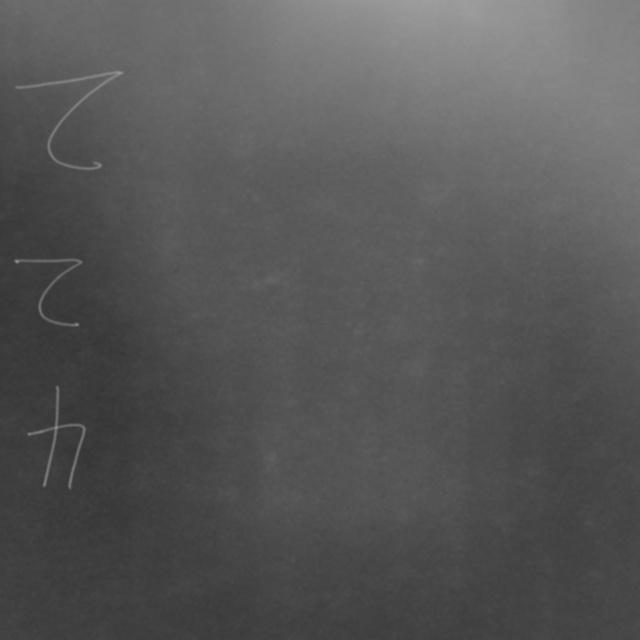 て
て
カ